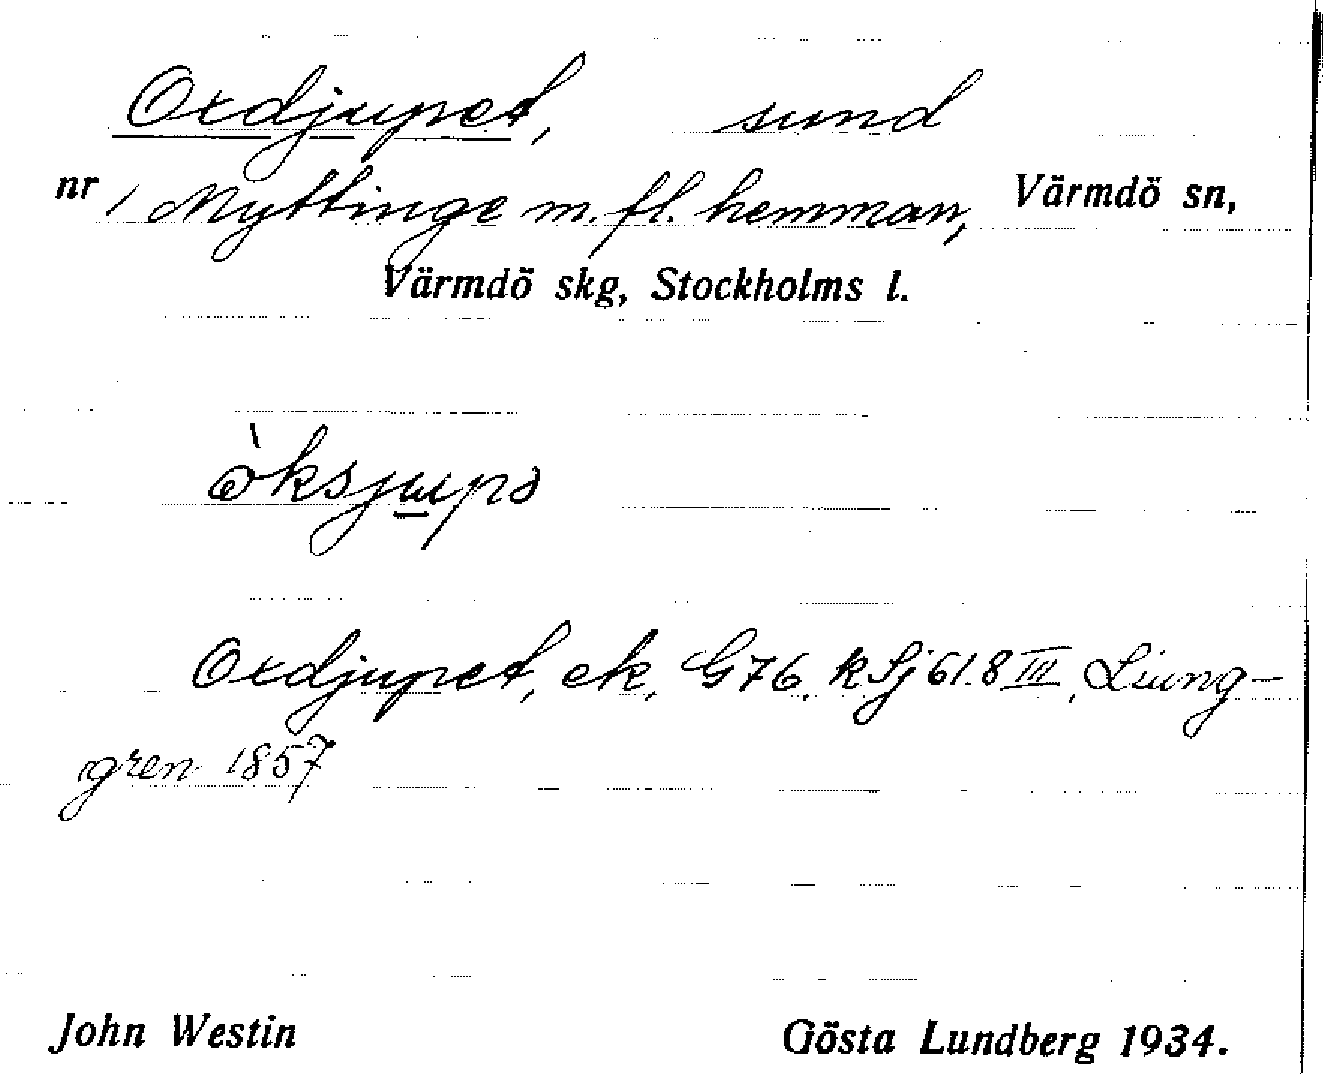 Oxdjupet, sund
nr 1 Myttinge m. fl. hemman, Värmdö sn,
Värmdö skg, Stockholms l.
òksjupə
Oxdjupet, ek. G76. kSj 61.8 III, Liung-
gren 1857
John Westin Gösta Lundberg 1934.